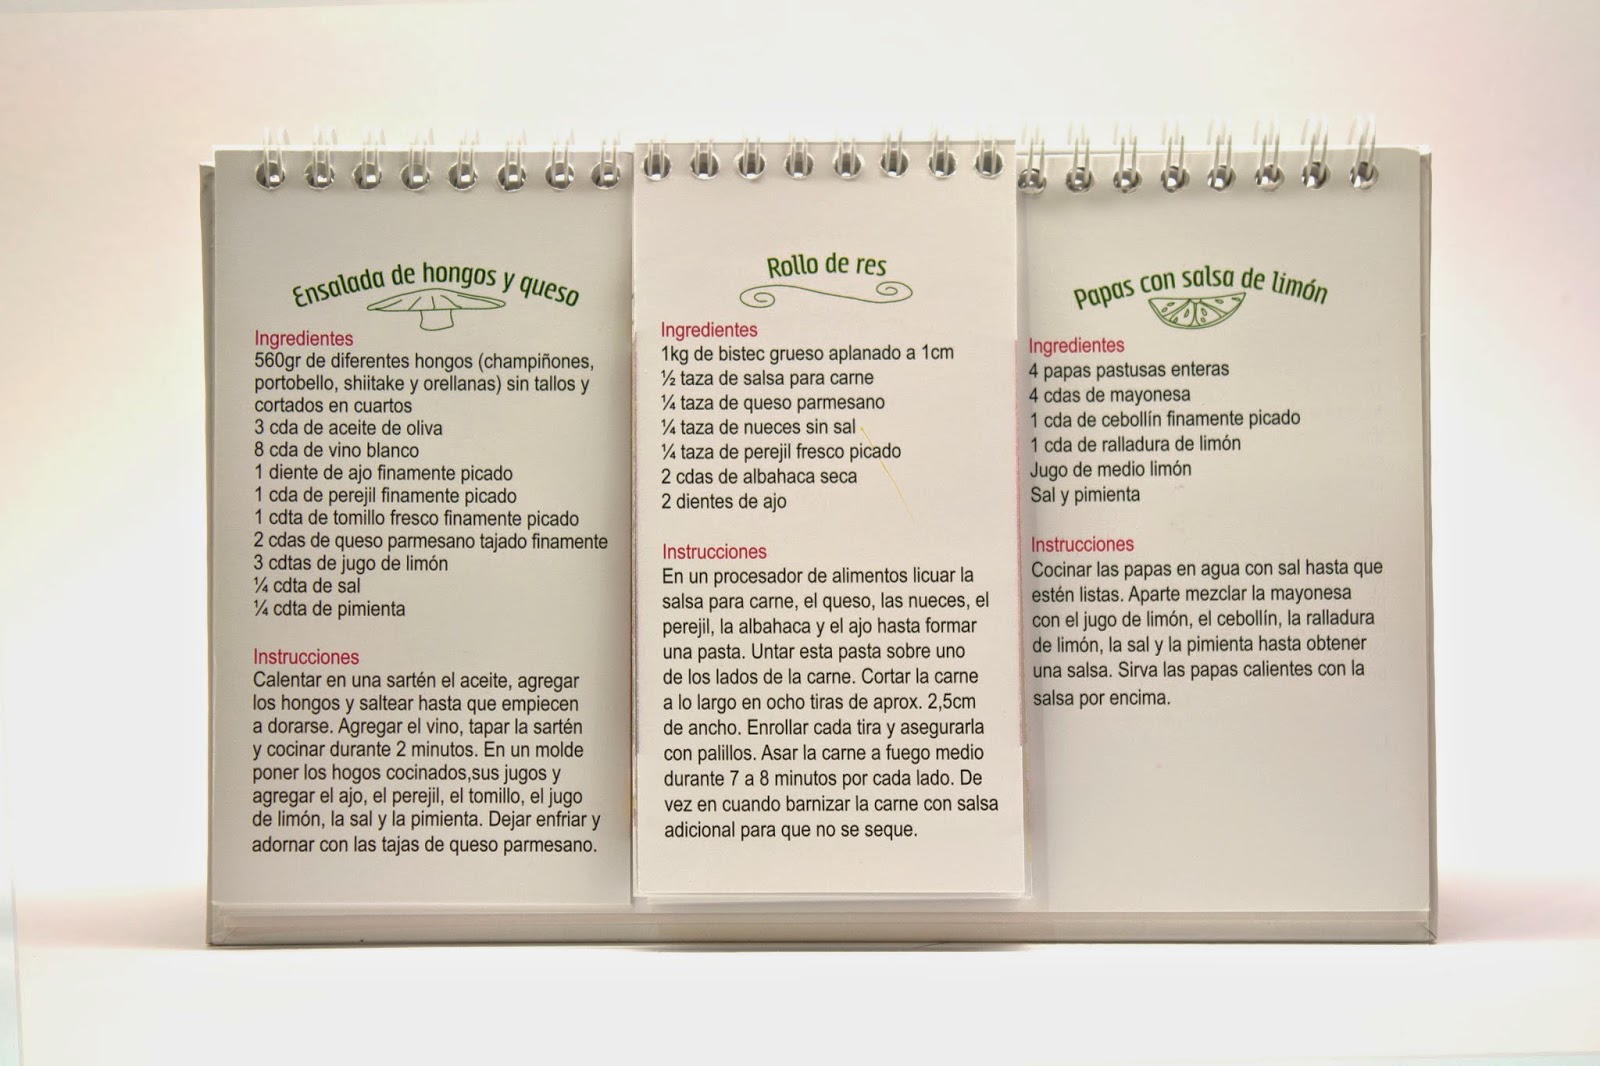 Ensalada de hongos y queso
Ingredientes
560gr de diferentes hongos (champiñones,
portobello, shiitake y orellanas) sin tallos y
cortados en cuartos
3 cda de aceite de oliva
8 cda de vino blanco
1 diente de ajo finamente picado
1 cda de perejil finamente picado
1 cdta de tomillo fresco finamente picado
2 cdas de queso parmesano tajado finamente
3 cdtas de jugo de limón
¼ cdta de sal
¼ cdta de pimienta
Instrucciones
Calentar en una sartén el aceite, agregar
los hongos y saltear hasta que empiecen
a dorarse. Agregar el vino, tapar la sartén
y cocinar durante 2 minutos. En un molde
poner los hogos cocinados,sus jugos y
agregar el ajo, el perejil, el tomillo, el jugo
de limón, la sal y la pimienta. Dejar enfriar y
adornar con las tajas de queso parmesano.
Rollo de res
Ingredientes
1kg de bistec grueso aplanado a 1cm
½ taza de salsa para carne
¼ taza de queso parmesano
¼ taza de nueces sin sal
¼ taza de perejil fresco picado
2 cdas de albahaca seca
2 dientes de ajo
Instrucciones
En un procesador de alimentos licuar la
salsa para carne, el queso, las nueces, el
perejil, la albahaca y el ajo hasta formar
una pasta. Untar esta pasta sobre uno
de los lados de la carne. Cortar la carne
a lo largo en ocho tiras de aprox. 2,5cm
de ancho. Enrollar cada tira y asegurarla
con palillos. Asar la carne a fuego medio
durante 7 a 8 minutos por cada lado. De
vez en cuando barnizar la carne con salsa
adicional para que no se seque.
Papas con salsa de limón
Ingredientes
4 papas pastusas enteras
4 cdas de mayonesa
1 cda de cebollín finamente picado
1 cda de ralladura de limón
Jugo de medio limón
Sal y pimienta
Instrucciones
Cocinar las papas en agua con sal hasta que
estén listas. Aparte mezclar la mayonesa
con el jugo de limón, el cebollín, la ralladura
de limón, la sal y la pimienta hasta obtener
una salsa. Sirva las papas calientes con la
salsa por encima.